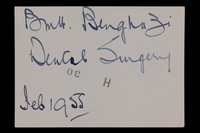 BMH. Benghazi
Dental Surgery
H 30
Feb 1955